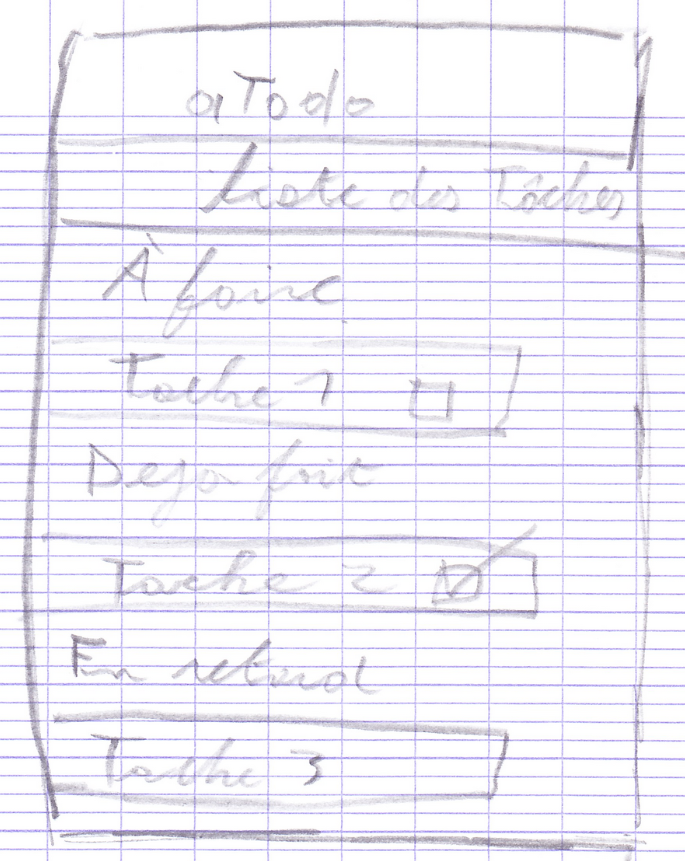 aTodo
Liste des Tâches
À faire
Tache 1
Deja fait
Tache 2
En retard
Tache 3